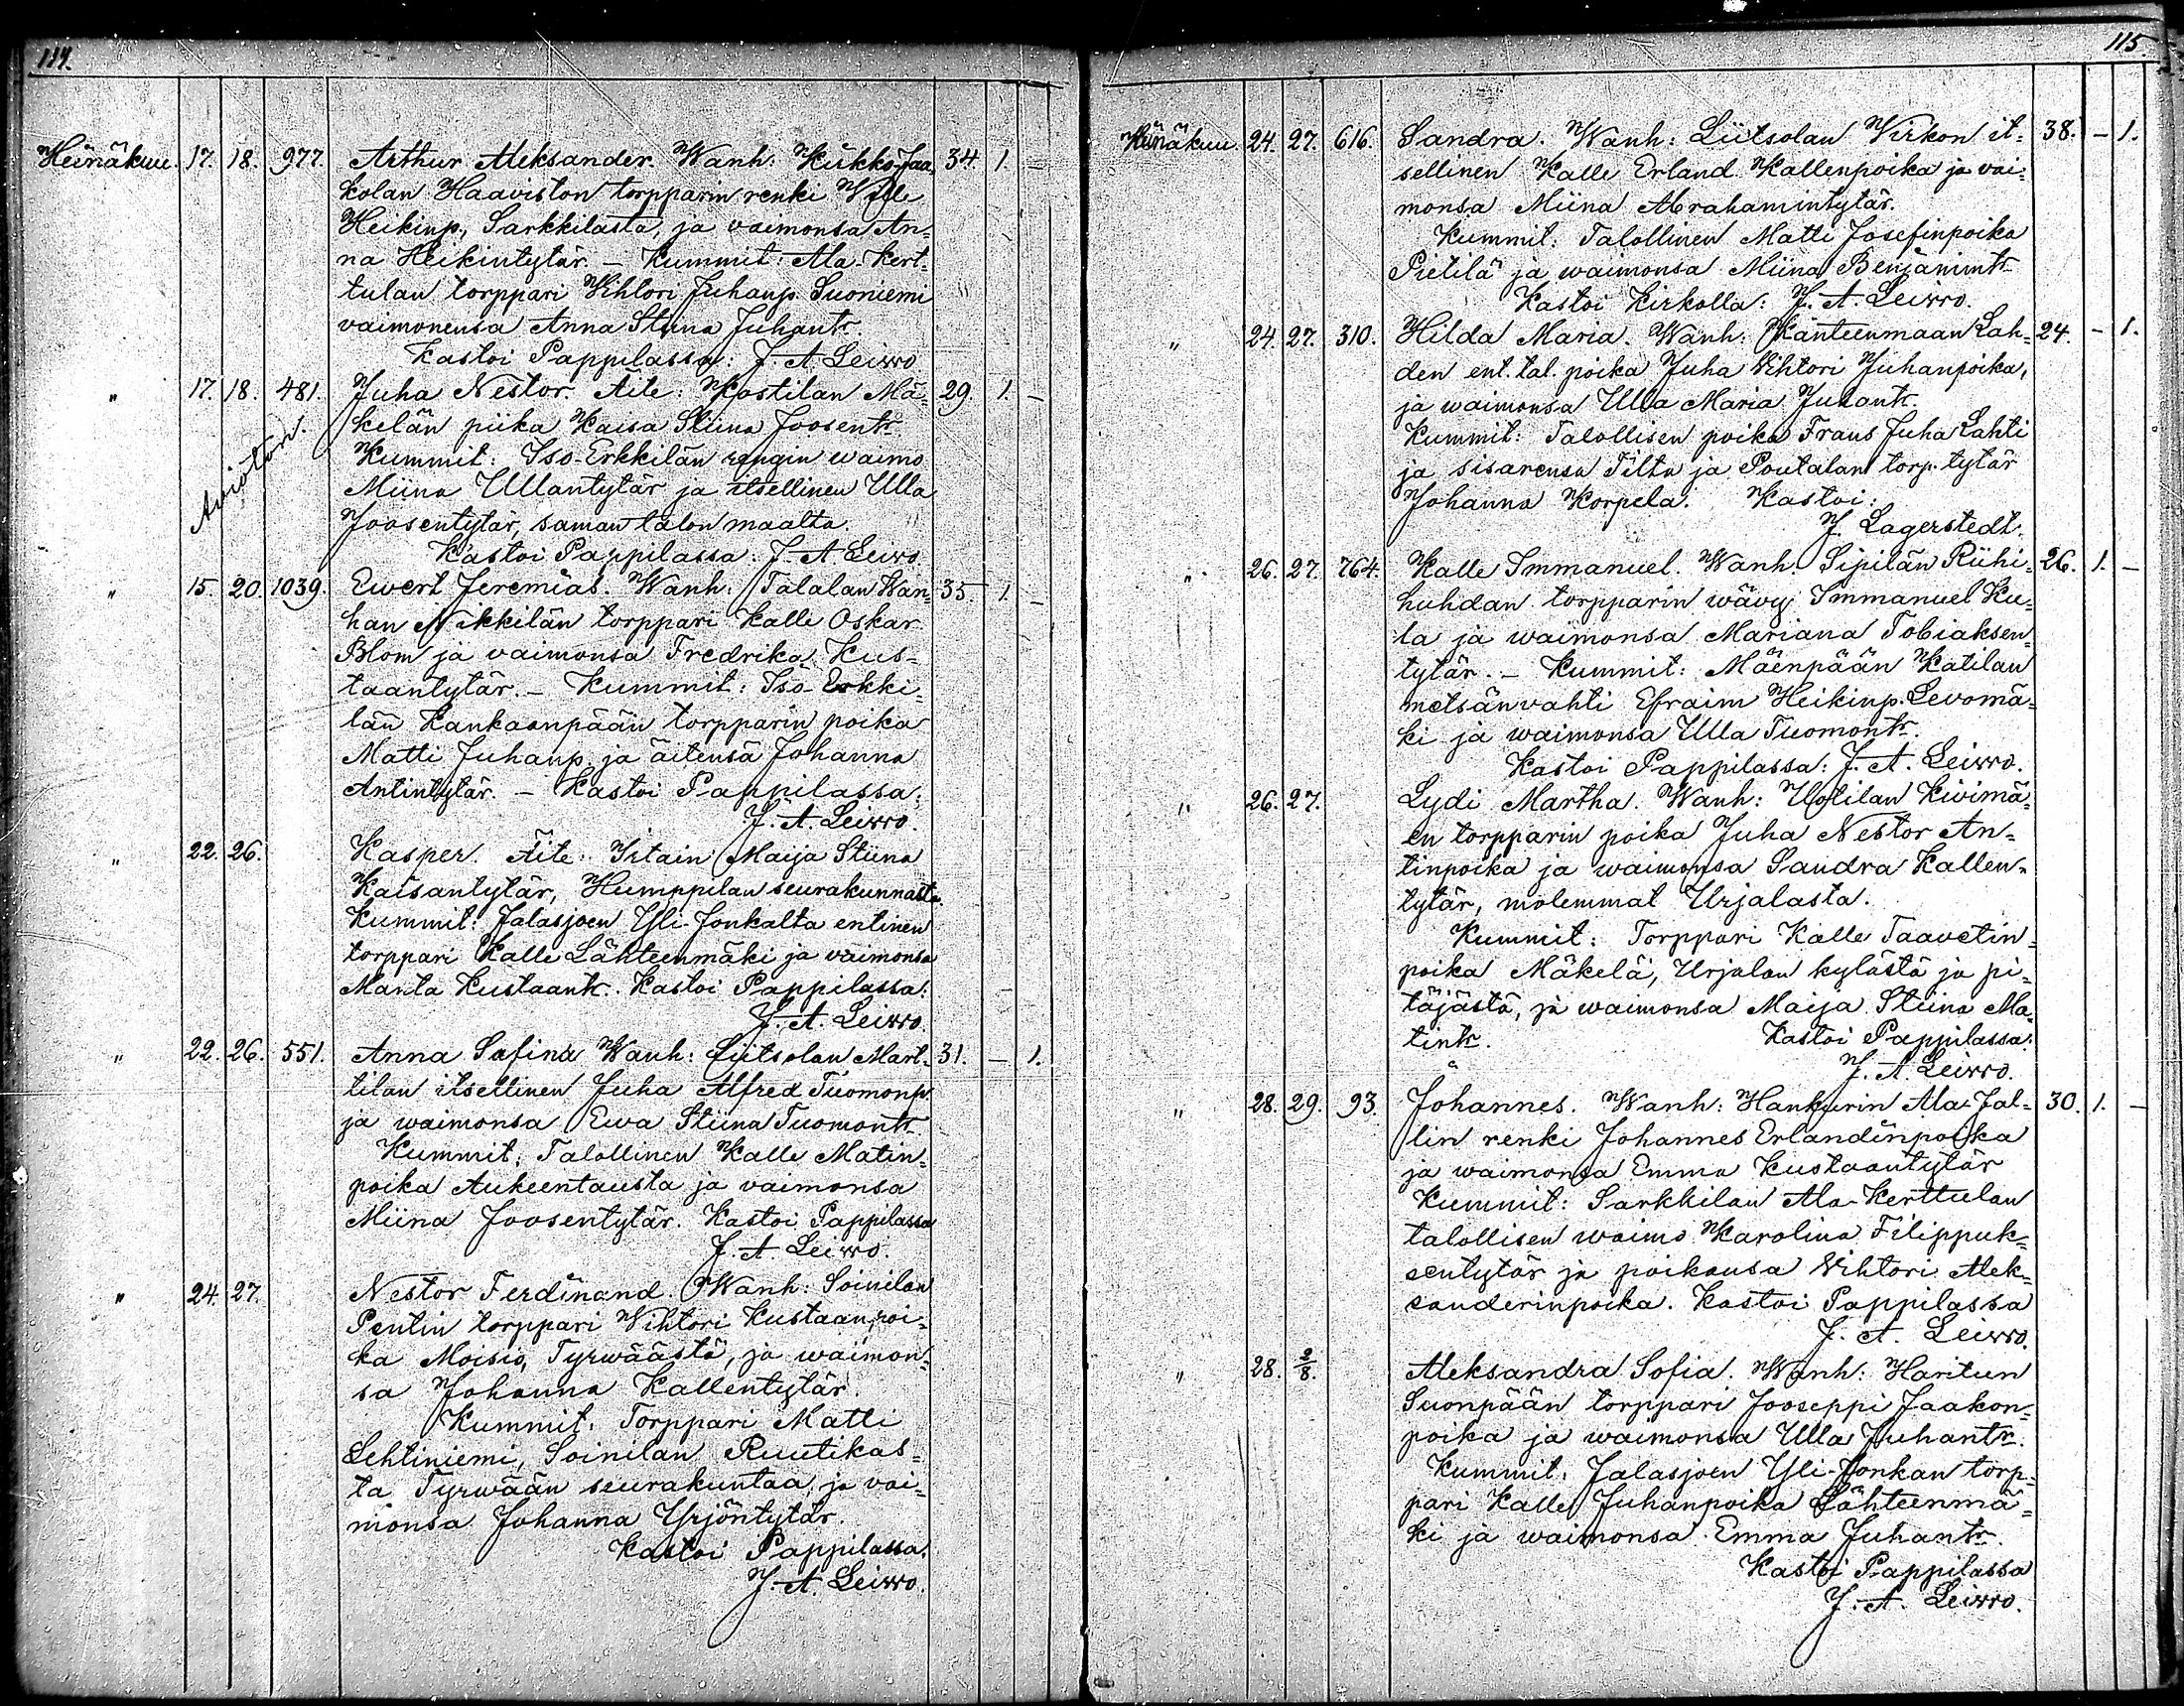 114.
Heinäkuu. 17. 18. 977. Arthur Aleksander. Wanh: Kiikko-Jaa= 34. 1. –
kolan Haaviston torpparin renki Wille
Heikinp., Sarkkilasta, ja vaimonsa An=
na Heikintytär. – Kummit: Ala-Kert=
tulan torppari Vihtori Juhanp. Suoniemi
vaimonensa Anna Stiina Juhantr.
Kastoi Pappilassa: J. A. Leivvo
" 17. 18. 481. Juha Nestor. Äite: Kostilan Mä= 29. 1. –
Aviotoin.
kelän piika Kaisa Stiina Joosentr.
Kummit: Iso-Erkkilän rengin waimo
Miina Ullantytär ja itsellinen Ulla
Joosentytär, saman talon maalta.
Kastoi Pappilassa: J. A. Leivvo
" 15. 20. 1039. Ewert Jeremias. Wanh: Talalan Wan= 35. 1. –
han Mikkilän torppari Kalle Oskar
Blom ja vaimonsa Fredrika Kus=
taantytär. – Kummit: Iso-Erkki=
län Kankaanpään torpparin poika
Matti Juhanp. ja äitensä Johanna
Antintytär. – Kastoi Pappilassa:
J. A. Leivvo.
" 22. 26. Kasper. Äite: Irtain Maija Stiina
Kaisantytär, Humppilan seurakunnasta.
Kummit: Jalasjoen Yli-Jonkalta entinen
torppari Kalle Lähteenmäki ja vaimonsa
Manta Kustaantr. Kastoi Pappilassa:
J. A. Leivvo.
" 22. 26. 551. Anna Safina Wanh: Liitsolan Mart= 31. – 1.
tilan itsellinen Juha Alfred Tuomonp.
ja waimonsa Ewa Stiina Tuomontr.
Kummit: Talollinen Kalle Matin=
poika Aukeentausta ja vaimonsa
Miina Joosentytär. Kastoi Pappilassa
J. A. Leivvo.
" 24. 27. Nestor Ferdinand. Wanh: Soinilan
Pentin torppari Vihtori Kustaanpoi=
ka Moisio, Tyrwäästä, ja waimon=
sa Johanna Kallentytär.
Kummit: Torppari Matti
Lehtiniemi, Soinilan Ruutikas=
ta Tyrwään seurakuntaa, ja vai=
monsa Johanna Yrjöntytär.
Kastoi Pappilassa.
J. A. Leivvo.
115
Heinäkuu 24. 27. 616. Sandra. Wanh: Liitsolan Wirkon it= 38. – 1.
sellinen Kalle Erland Kallenpoika ja vai=
monsa Miina Abrahamintytär.
Kummit: Talollinen Matti Josefinpoika
Pietilä ja waimonsa Miina Benjamintr.
Kastoi Kirkolla: J. A. Leivvo.
" 24. 27. 310. Hilda Maria. Wanh: Kanteenmaan Lah= 24. – 1.
den ent. tal. poika Juha Vihtori Juhanpoika,
ja waimonsa Ulla Maria Juhantr.
Kummit: Talollisen poika Frans Juha Lahti
ja sisarensa Tilta ja Poutalan torp. tytär
Johanna Korpela. Kastoi:
J. Lagerstedt.
" 26. 27. 764. Kalle Immanuel. Wanh. Sipilän Riihi= 26. 1. –
huhdan torpparin wävy Immanuel Ku=
la ja waimonsa Mariana Tobiaksen=
tytär. – Kummit: Mäenpään Katilan
metsänvahti Efraim Heikinp. Levomä=
ki ja waimonsa Ulla Tuomontr.
Kastoi Pappilassa: J. A. Leivvo.
" 26. 27. Lydi Martha. Wanh: Uotilan Kivimä=
en torpparin poika Juha Nestor An=
tinpoika ja waimonsa Sandra Kallen=
tytär, molemmat Urjalasta.
Kummit: Torppari Kalle Taavetin=
poika Mäkelä, Urjalan kylästä ja pi=
täjästä, ja waimonsa Maija Stiina Ma=
tintr. Kastoi Pappilassa:
J. A. Leivvo.
" 28. 29. 93. Johannes. Wanh: Hankurin Ala-Jal= 30. 1. –
lin renki Johannes Erlandinpoika
ja waimonsa Emma Kustaantytär
Kummit: Sarkkilan Ala-Kerttulan
talollisen waimo Karolina Filippuk=
sentytär ja poikansa Vihtori Alek=
sanderinpoika. Kastoi Pappilassa
J. A. Leivvo.
" 28. 2/8. Aleksandra Sofia. Wanh: Haritun
Suonpään torppari Jooseppi Jaakon=
poika ja waimonsa Ulla Juhantr.
Kummit: Jalasjoen Yli-Jonkan torp=
pari Kalle Juhanpoika Lähteenmä=
ki ja waimonsa Emma Juhantr.
Kastoi Pappilassa
J. A. Leivvo.